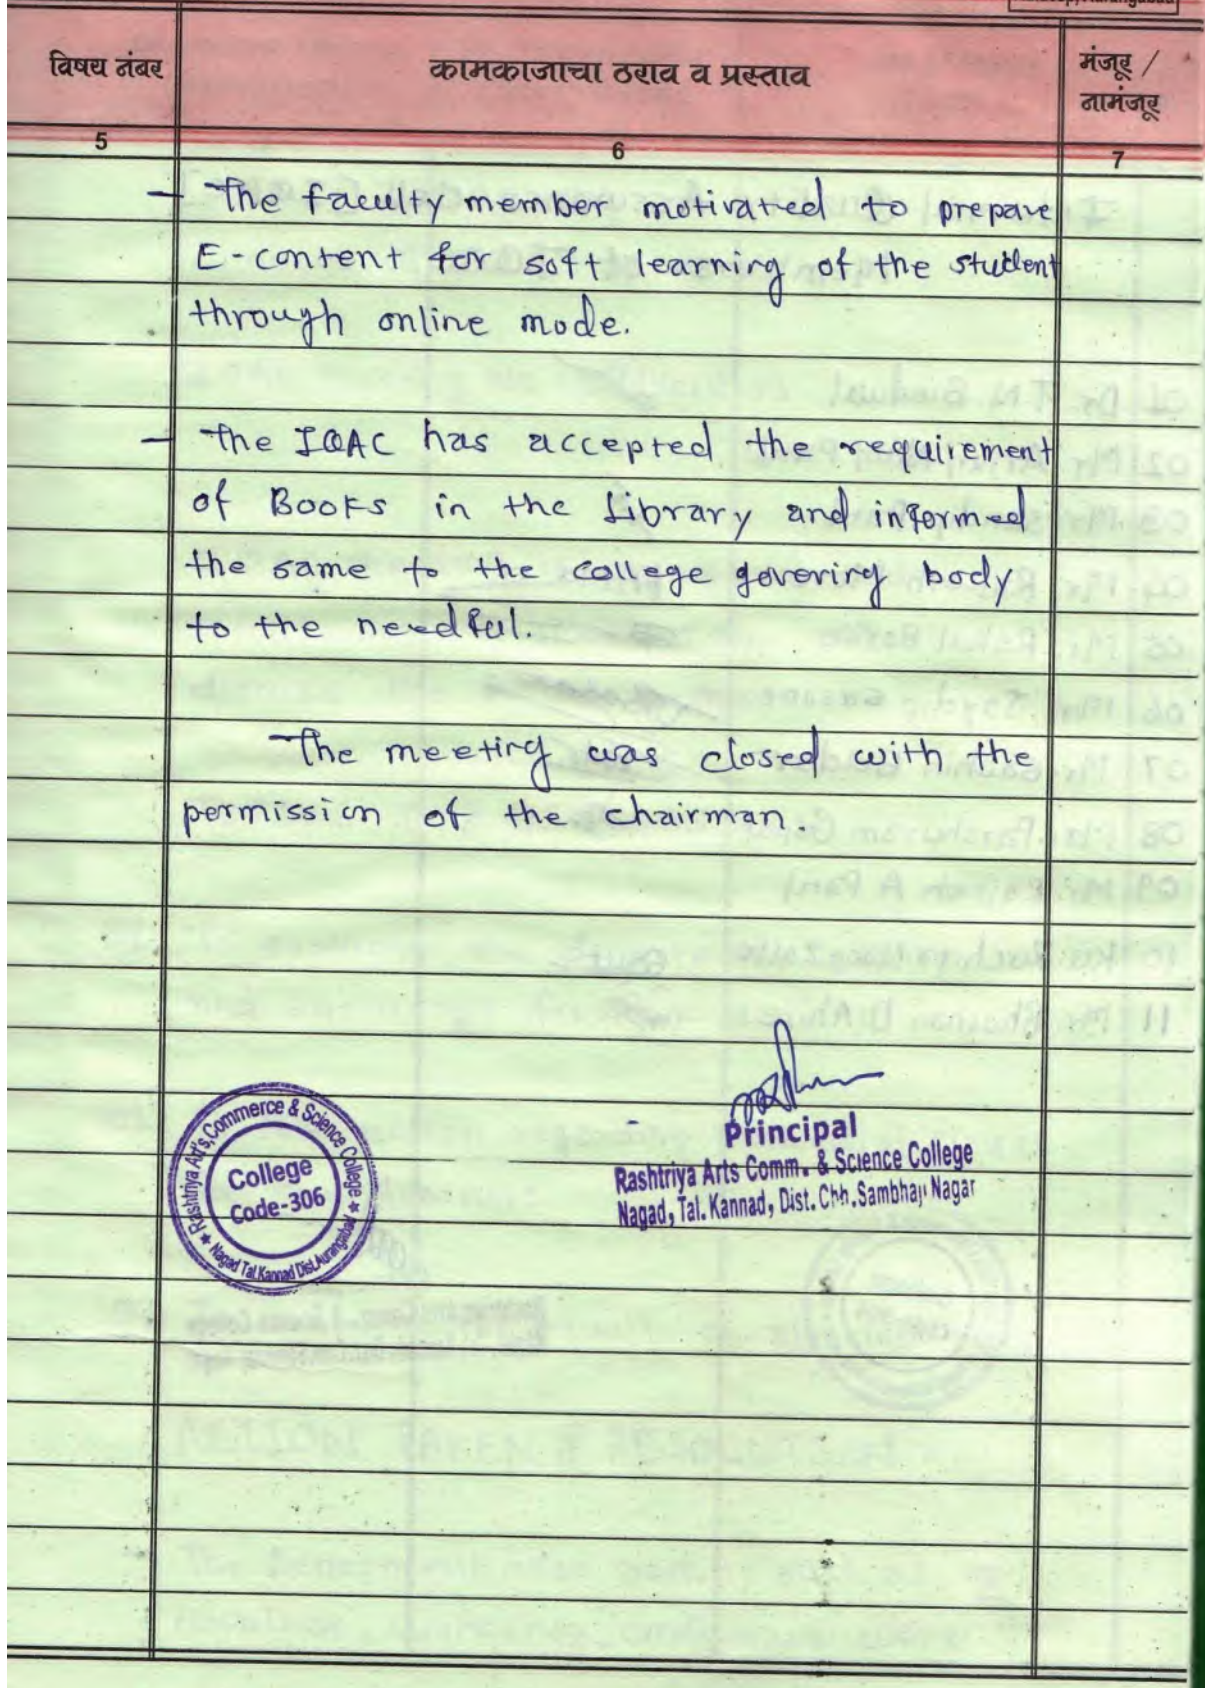 विषय नंबर
कामकाजाचा ठराव व प्रस्ताव
मंजूर /
नामंजूर
5
6
7
- The faculty member motivated to prepare
E-content for soft learning of the student
through online mode.
- The IQAC has accepted the requirement
of Books in the Library and informed
the same to the college goverirg body
to the needful.
The meeting was closed with the
permission of the chairman.
Rashtriya Art's, Commerce & Science College
College
Code-306
★ Nagad Tal.Kannad Dist.Aurangabad ★
Principal
Rashtriya Arts Comm. & Science College
Nagad, Tal. Kannad, Dist. Chh.Sambhaji Nagar